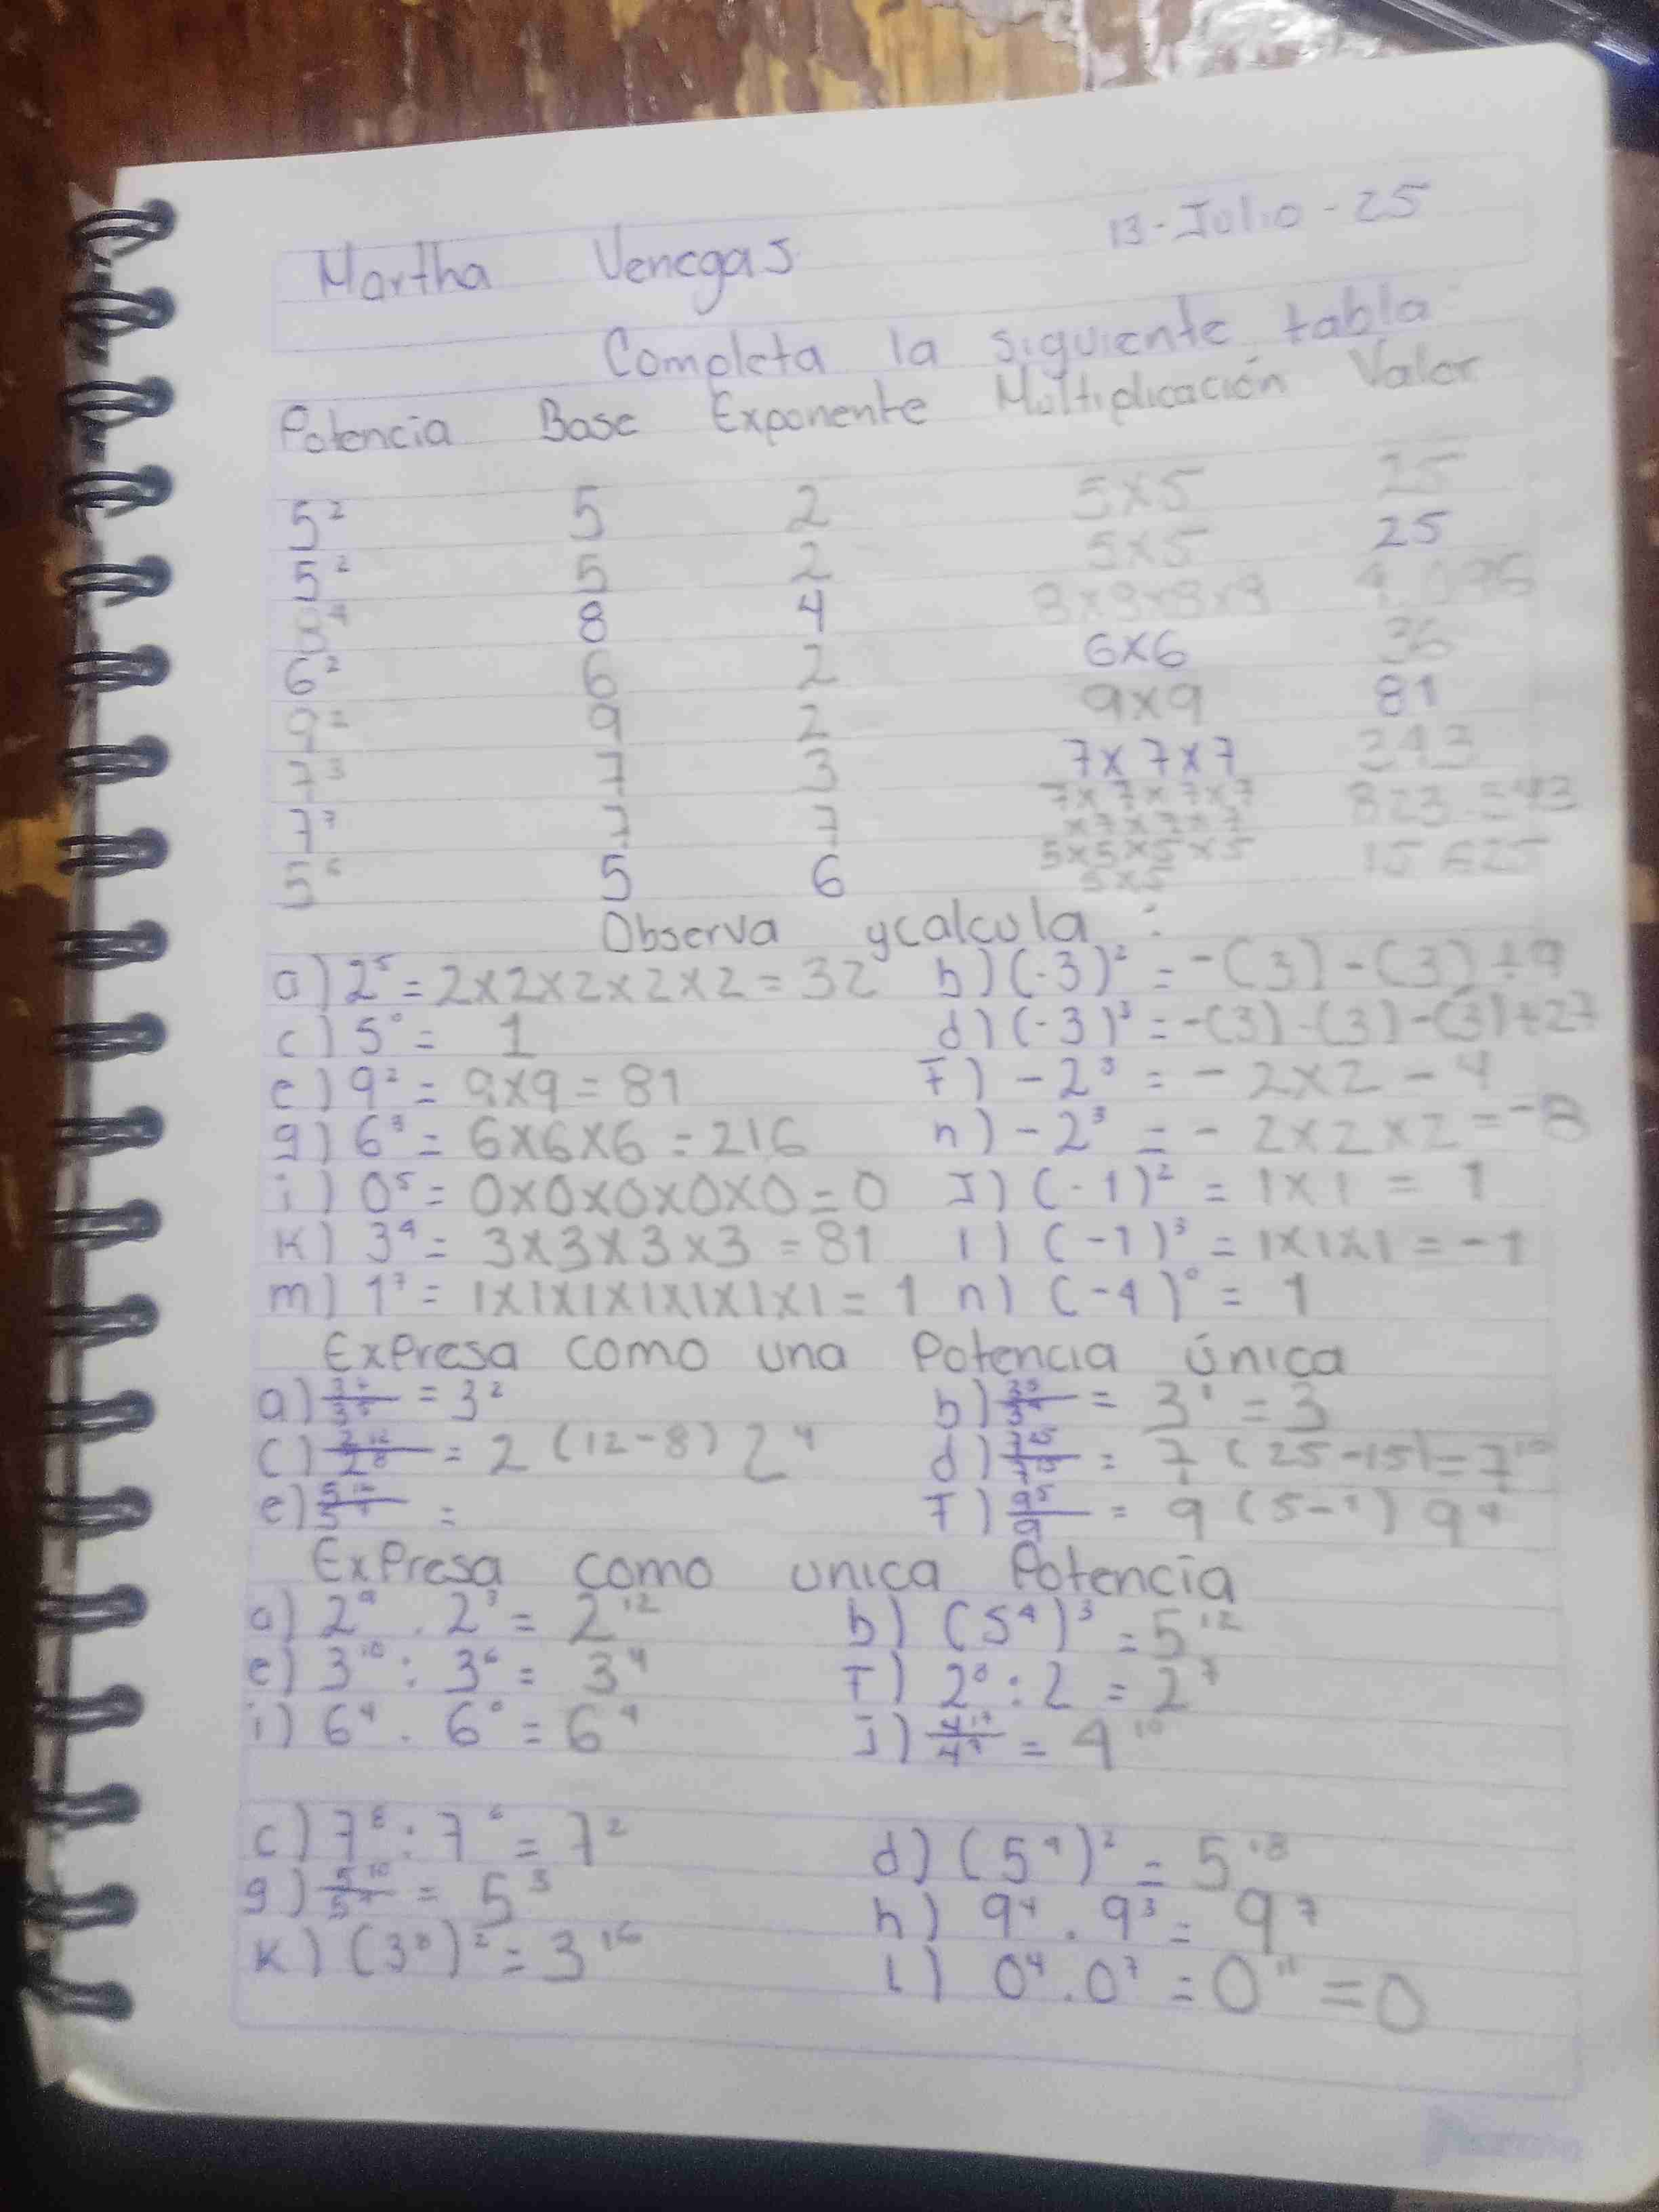 Martha Venegas 13-Julio-25
Completa la siguiente tabla
Potencia Base Exponente Multiplicación Valor
5² 5 2 5x5 25
5² 5 2 5x5 25
8⁴ 8 4 8x8x8x8 4.096
6² 6 2 6x6 36
9² 9 2 9x9 81
7³ 7 3 7x7x7
7⁷ 7 7 7x7x7x7
x7x7x7
5⁶ 5 6 5x5x5x5 15 625
5x5
Observa ycalcula :
a) 2⁵ = 2x2x2x2x2 = 32 b) (-3)² = -(3) -(3) +9
c) 5⁰ = 1 d) (-3)³ = -(3) -(3) -(3) +27
e) 9² = 9x9 = 81 f) -2³ = - 2x2 - 4
g) 6³ = 6x6x6 = 216 h) -2³ = - 2x2x2 = -8
i) 0⁵ = 0x0x0x0x0 = 0 J) (-1)² = 1x1 = 1
K) 3⁴ = 3x3x3x3 = 81 l) (-1)³ = 1x1x1 = -1
m) 1⁷ = 1x1x1x1x1x1x1 = 1 n) (-4)⁰ = 1
Expresa como una Potencia única
a) = 3² b) = 3¹ = 3
c) 2¹²/2⁸ = 2 (12-8) 2⁴ d) 7²⁵/7¹⁵ = 7 (25-15) = 7¹⁰
e) = f) 9⁵/9 = 9 (5-1) 9⁴
Expresa como unica Potencia
a) 2⁹ . 2³ = 2¹² b) (5⁴)³ = 5¹²
e) 3¹⁰ : 3⁶ = 3⁴ f) 2⁸ : 2 = 2⁷
i) 6⁴ . 6⁰ = 6⁴ j) 4¹⁷/4⁷ = 4¹⁰
c) 7⁸ : 7⁶ = 7² d) (5⁹)² = 5¹⁸
g) 5¹⁰/5⁷ = 5³ h) 9⁴ . 9³ = 9⁷
K) (3⁸)² = 3¹⁶ l) 0⁴ . 0⁷ = 0¹¹ = 0